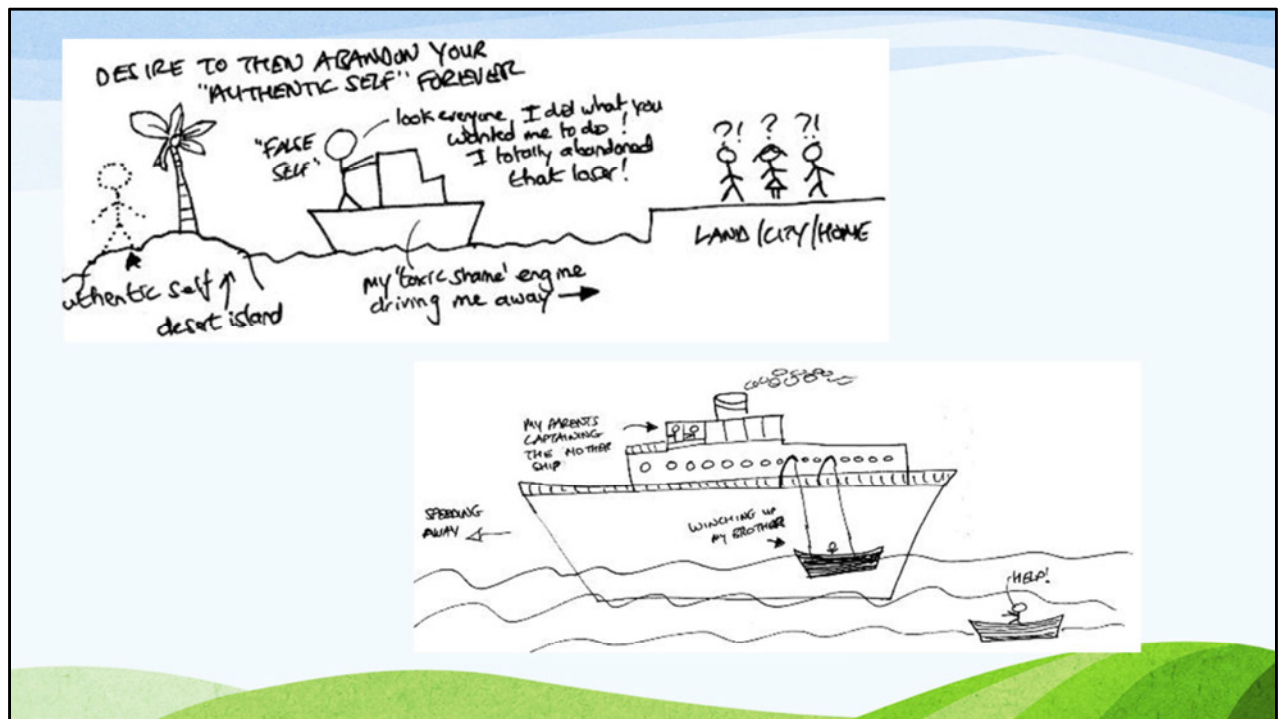 DESIRE TO THEN ABANDON YOUR
"AUTHENTIC SELF" FOREVER
"FALSE
SELF"
look everyone, I did what you
wanted me to do!
I totally abandoned
that loser!
?! ? ?!
LAND/CITY/HOME
uthentic self
desert island
my 'toxic shame' engine
driving me away
MY PARENTS
CAPTAINING
THE MOTHER
SHIP
SPEEDING
AWAY
WINCHING UP
MY BROTHER
HELP!